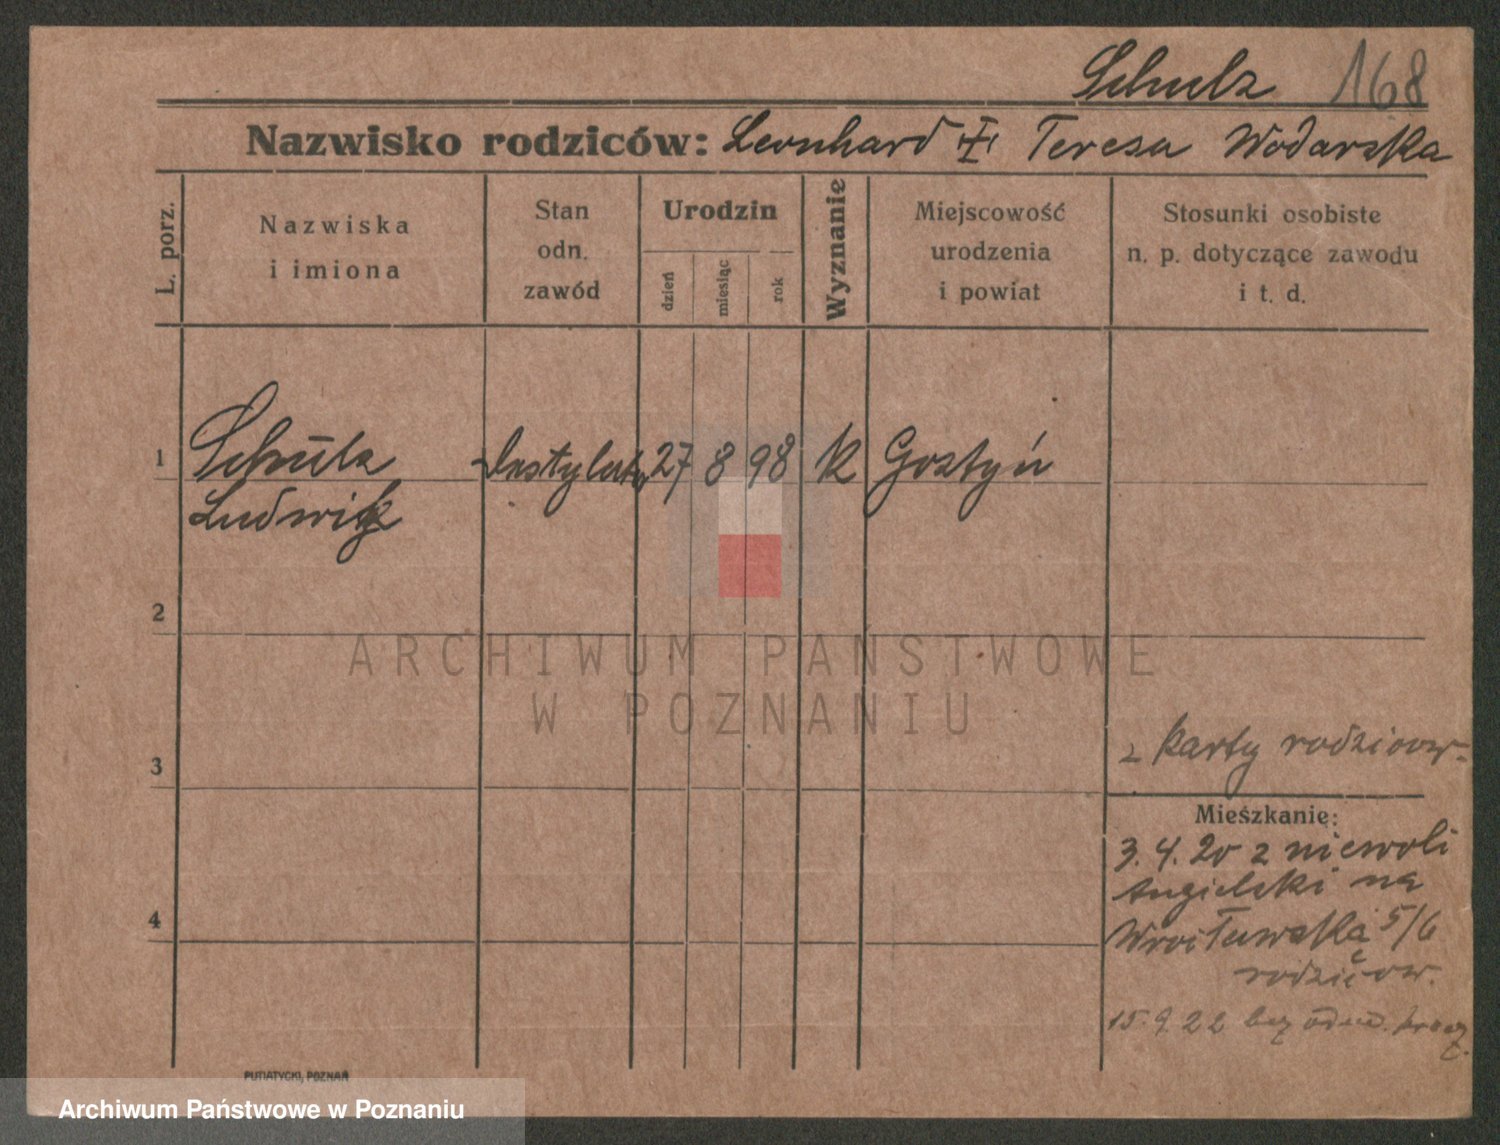 Schulz 168
Nazwisko rodziców: Leonhard Teresa Wodarska
L. porz.
Nazwiska
i imiona
Stan
odn.
zawód
Urodzin
dzień
miesiąc
rok
Wyznanie
Miejscowość
urodzenia
i powiat
Stosunki osobiste
n. p. dotyczące zawodu
i t. d.
1 Schulz 27 8 98 k Gostyń
Ludwik
2
3
z karty rodziców
Mieszkanie:
3. 4. 20 z niewoli
Angielski na
4
Wrocławska 5/6
rodziców.
15. 9. 22 bez
PUTIATYCKI, POZNAŃ
ARCHIWUM PAŃSTWOWE
W POZNANIU
Archiwum Państwowe w Poznaniu